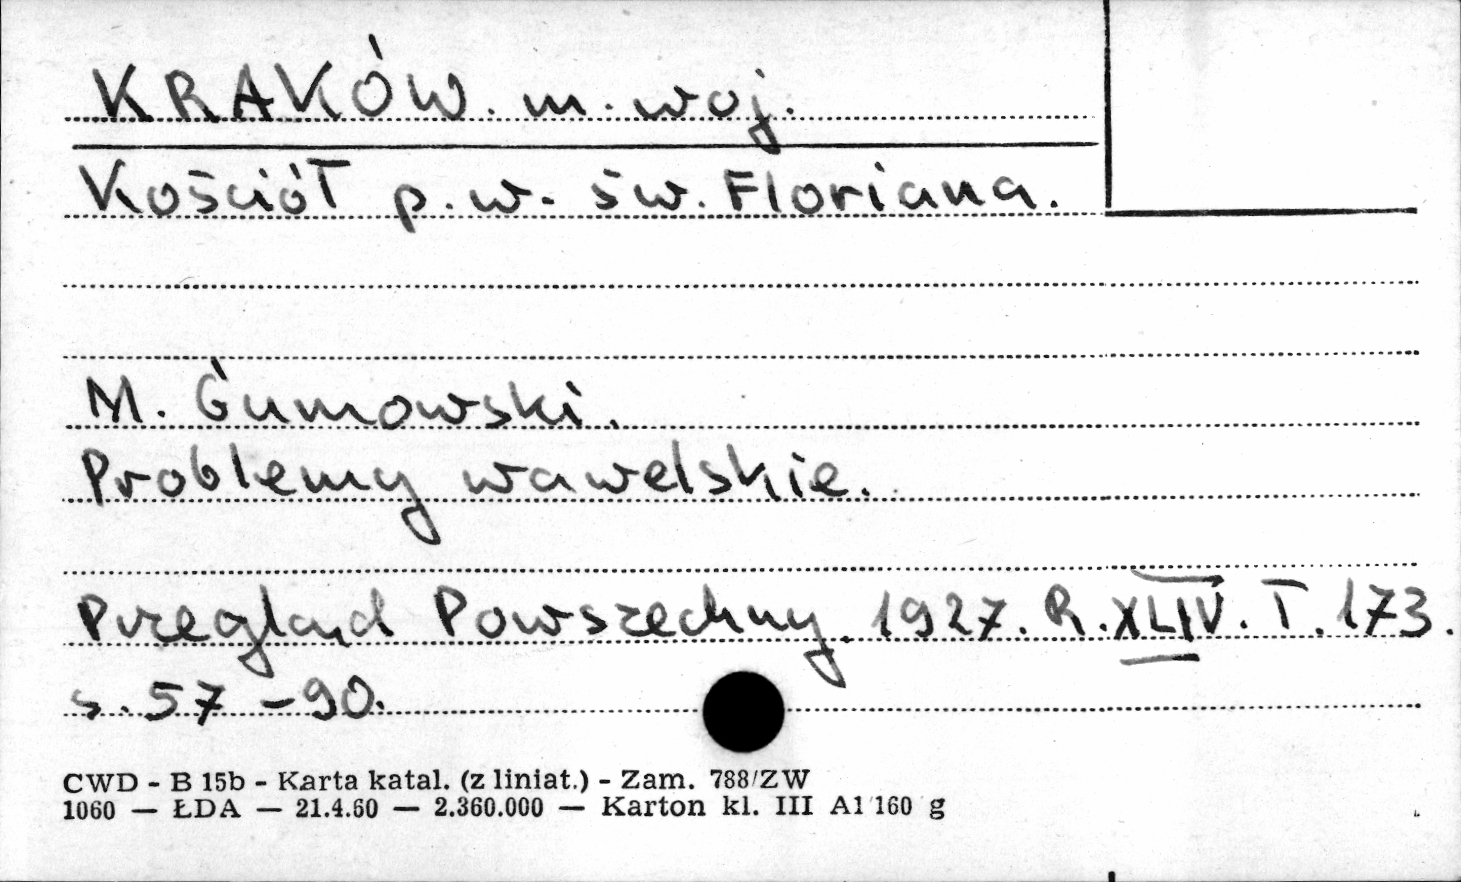 KRAKÓW. m. woj.
Kościół p.w. św. Floriana.
M. Gumowski.
Problemy wawelskie.
Przegląd Powszechny. 1927. R. XLIV. T. 173.
s. 57 - 90.
CWD - B 15b - Karta katal. (z liniat.) - Zam. 788/ZW
1060 — ŁDA — 21.4.60 — 2.360.000 — Karton kl. III A1 160 g